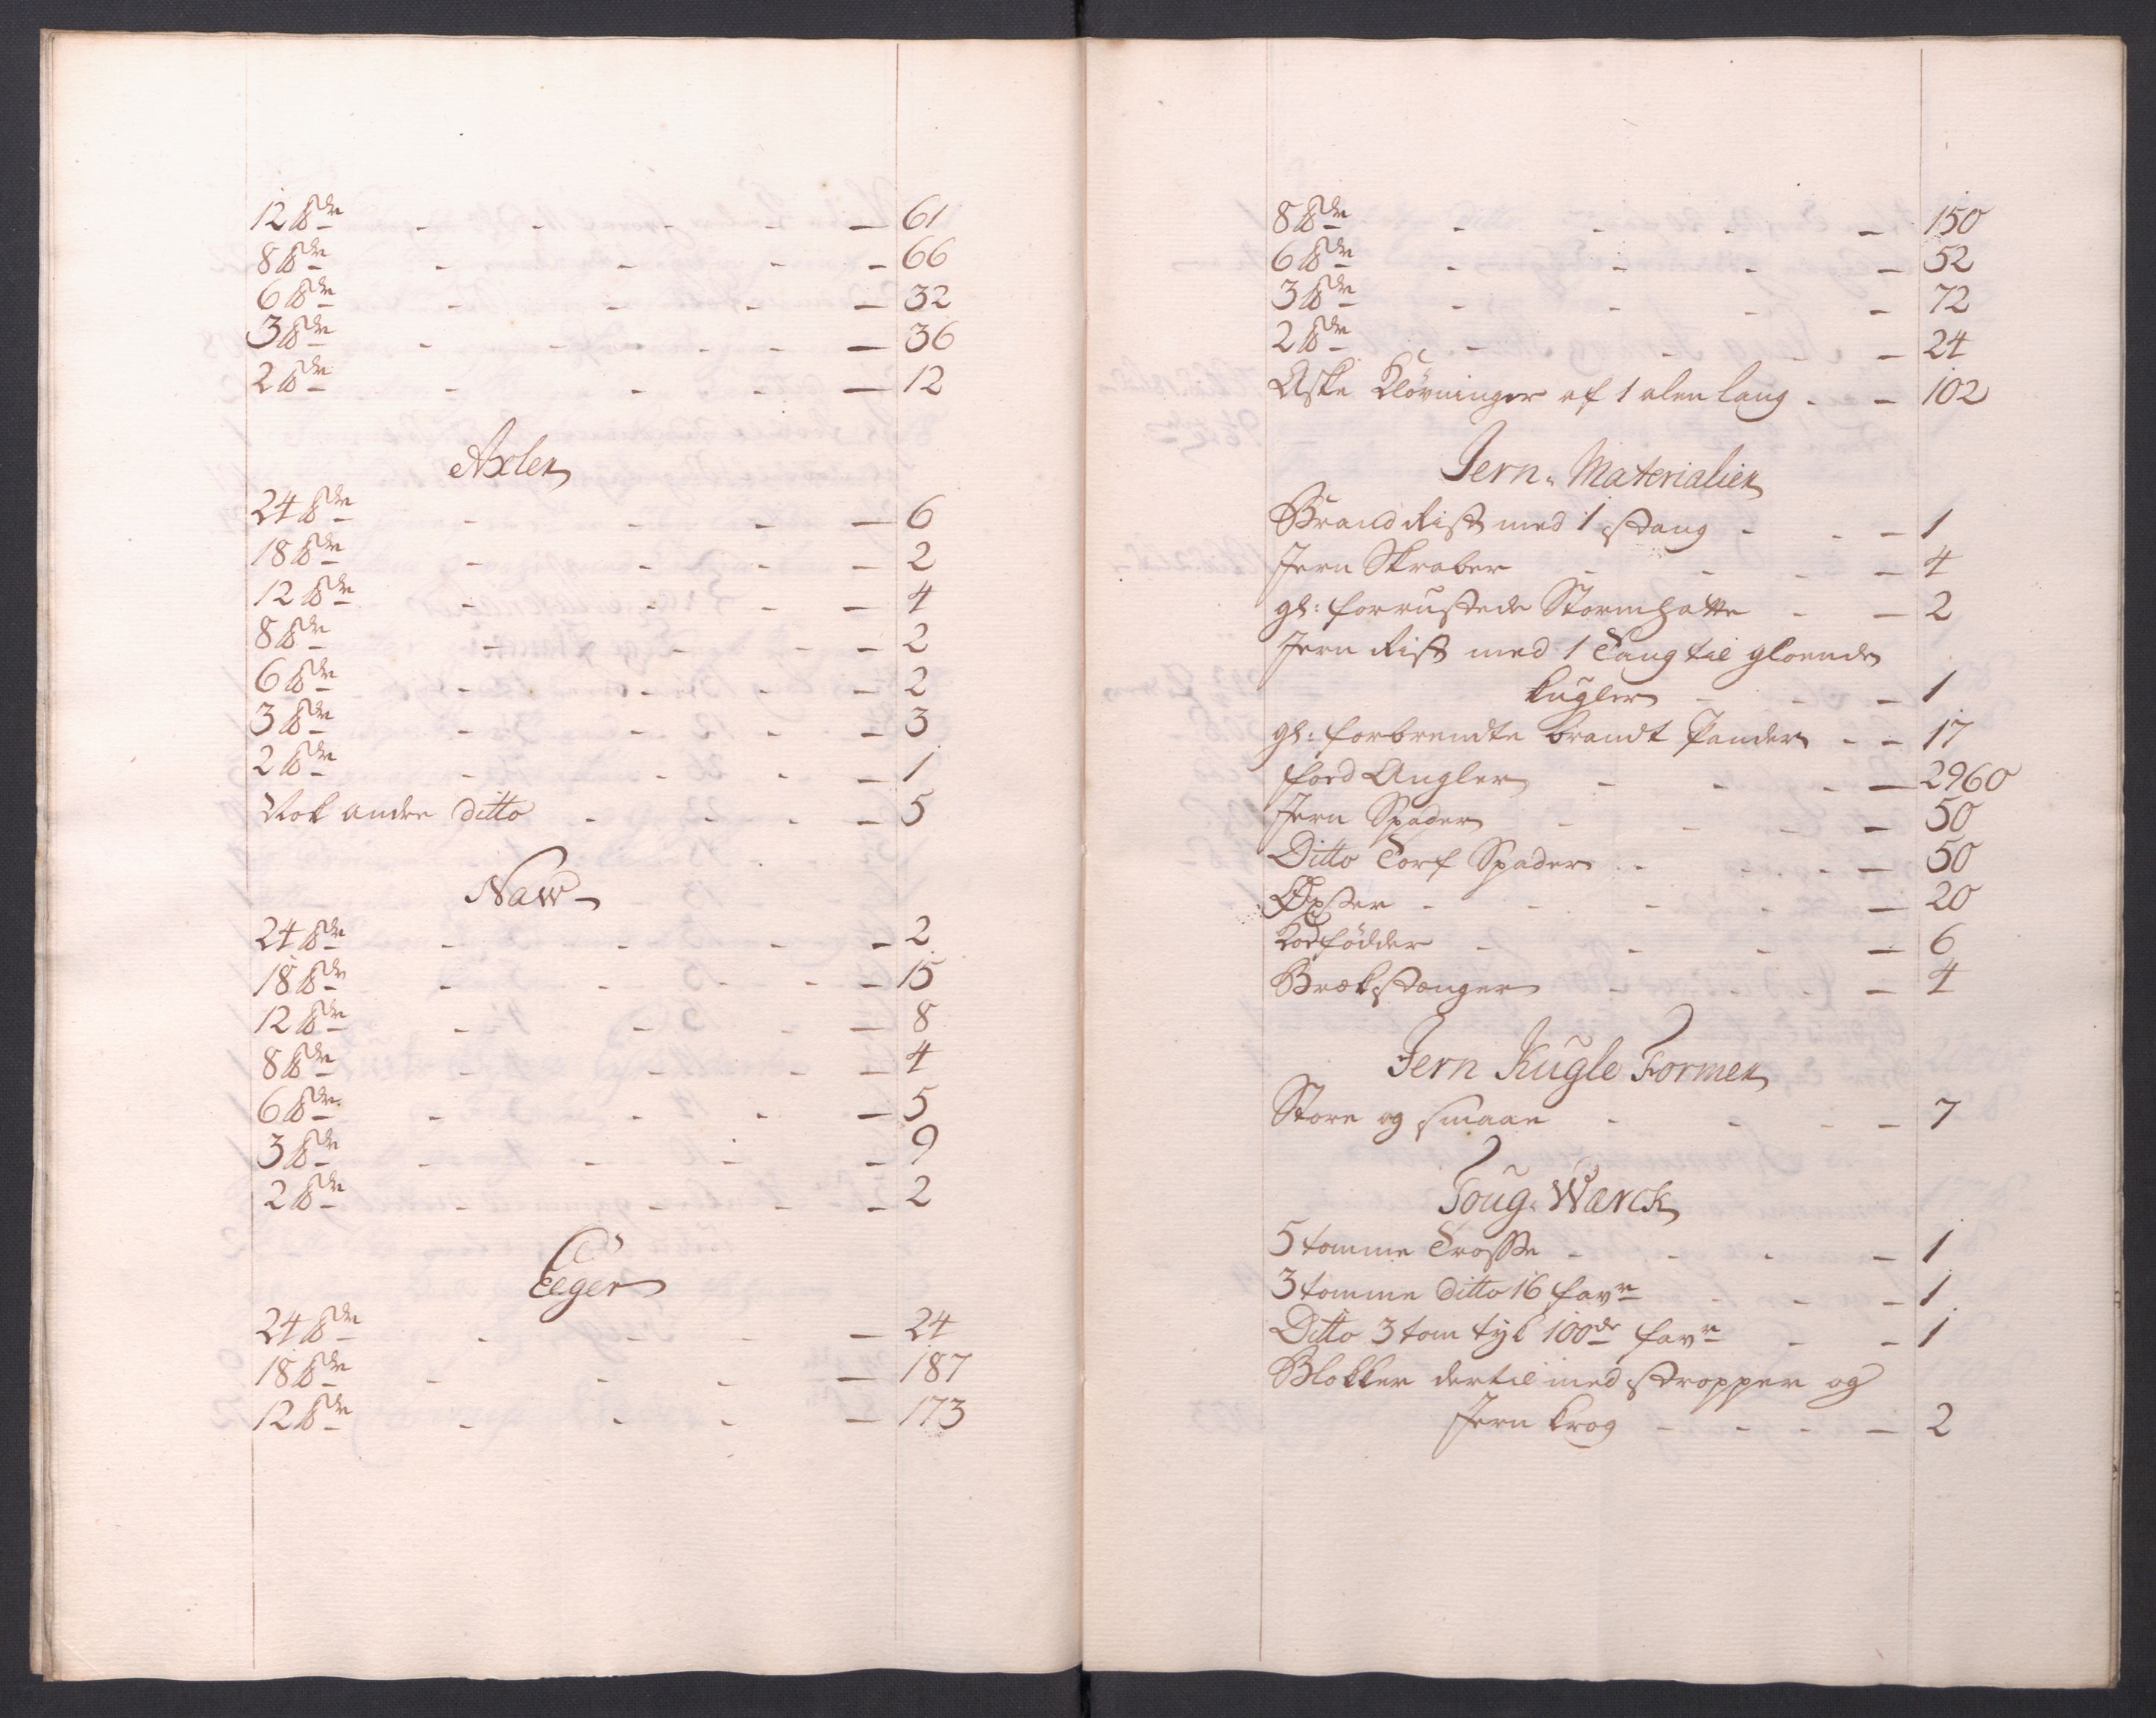 12 ℔de - - - - - 61
8 ℔de - - - - 66
6 ℔de - - - - 32
3 ℔de - - - - - 36
2 ℔de - - - - 12
Axler
24 ℔de - - - - 6
18 ℔de - - - - 2
12 ℔de - - - - 4
8 ℔de - - - - 2
6 ℔de - - - - 2
3 ℔de - - - - 3
2 ℔de - - - - 1
Nok andre ditto - - - - 5
Naw
24 ℔de - - - - 2
18 ℔de - - - - - 15
12 ℔de - - - - 8
8 ℔de - - - - 4
6 ℔de - - - - 5
3 ℔de - - - - 9
2 ℔de - - - - 2
Eeger
24 ℔de - - - - 24
18 ℔de - - - - 187
12 ℔de - - - - 173
8 ℔de - - - - 150
6 ℔de - - - - 52
3 ℔de - - - - 72
2 ℔de - - - - 24
Aske Kløvninger af 1 alen lang - - 102
Jern-Materialier
Brand Rist med 1 stang - - - 1
Jern Skraber - - - - 4
gl: forrustede Stormhatte - - 2
Jern Rist med 1 Tang til gloende
kugler - - - 1
gl: forbrendte brandt Pander - - 17
Fod Angler - - - - 2960
Jern Spader - - - - 50
Ditto Torf Spader - - - - 50
Øxser - - - - - 20
Kodfødder - - - - 6
Brækstænger - - - - 4
Jern Kugle Former
Store og smaae - - - - 7
Toug-Værck
5 tomme Trosse - - - - 1
3 tomme ditto 16 favn - - - 1
Ditto 3 tom tyk 100de favn - - 1
Blokker dertil med stropper og
Jern krog - - - - 2